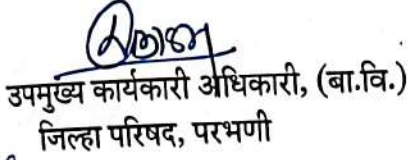 उपमुख्य कार्यकारी अधिकारी, (बा.वि.)
जिल्हा परिषद, परभणी